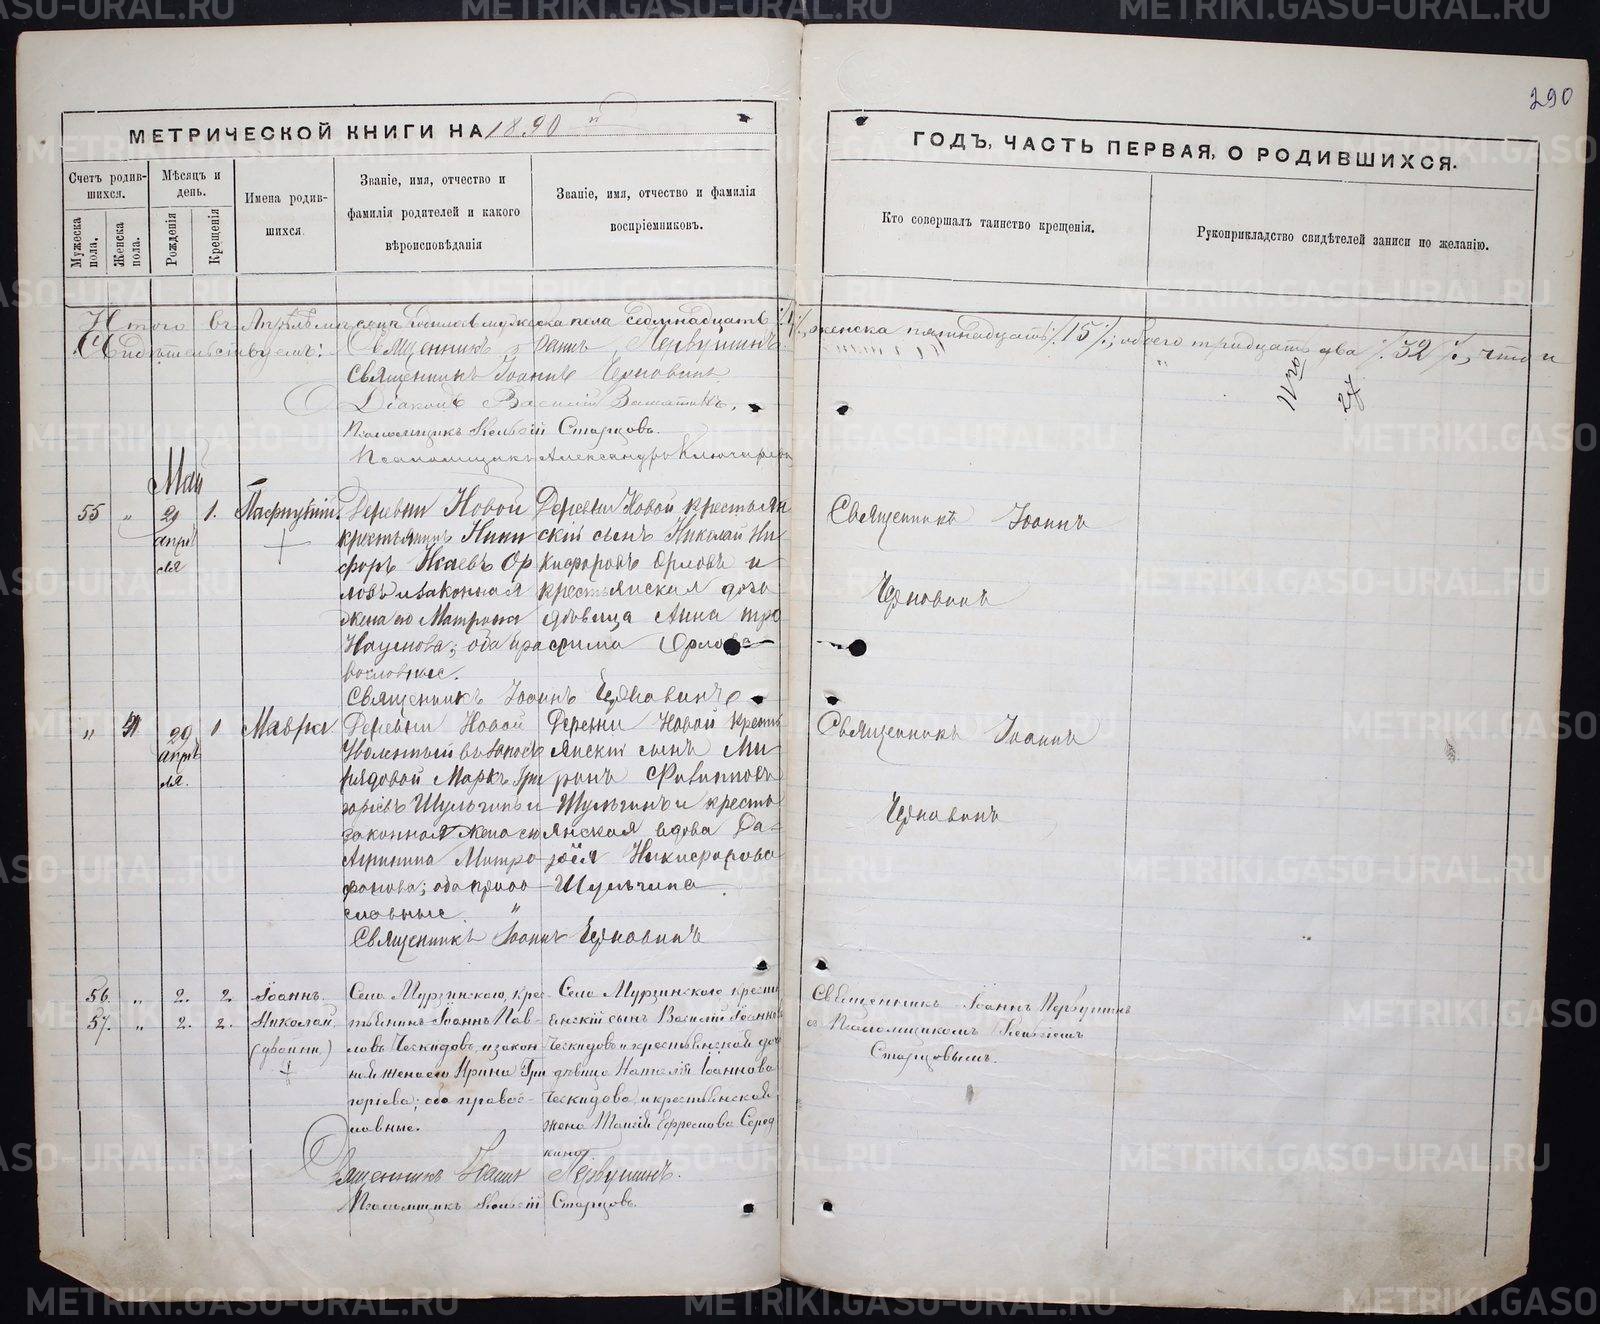 290
МЕТРИЧЕСКОЙ КНИГИ НА 1890
ГОДЪ, ЧАСТЬ ПЕРВАЯ, О РОДИВШИХСЯ.
Счетъ родив-
шихся.
Мужеска пола.
Женска пола.
Мѣсяцъ и
день.
Рожденія
Крещенія
Имена родив-
шихся.
Званіе, имя, отчество и
фамилія родителей и какого
вѣроисповѣданія
Званіе, имя, отчество и фамилія
воспріемниковъ.
Кто совершалъ таинство крещенія.
Рукоприкладство свидѣтелей записи по желанію.
Итого въ Апрѣлѣ мѣсяцѣ родилось мужеска пола семнадцать женска пятнадцать /15/; обоего тридцать два /32/, что и
Свидѣтельствуемъ: Священникъ Іоаннъ Первушинъ
Священникъ Іоаннъ Черновинъ
Діаконъ Василій
Псаломщикъ Старцовъ.
Псаломщикъ Александръ
Май
55 " 29 апрѣля 1. Пафнутій.
Деревни Новой
крестьянинъ Ники
форъ Исаевъ Ор
ловъ и законная
жена его Матрона
Наумова; оба пра
вославные.
Деревни Новой крестьян
скій сынъ Николай Ни
кифоровъ Орловъ и
крестьянская дочь
дѣвица Анна
Орлова
Священникъ Іоаннъ
Черновинъ
Священникъ Іоаннъ Черновинъ
" 29 апрѣля 1 Мавра
Деревни Новой
Уволенный въ запасъ
рядовой Маркъ Гри
горьевъ Шульгинъ и
законная жена его
Агрипина Митро
фанова; оба право
славные.
Деревни Новой кресть
янскій сынъ Ми
ронъ Филипповъ
Шульгинъ и кресть
янская вдова
Никифорова
Шульгина.
Священникъ Іоаннъ
Черновинъ
Священникъ Іоаннъ Черновинъ
56. " 2. 2. Іоаннъ.
57. " 2. 2. Николай
(двойни)
Села Мурзинскаго, крес-
тьянинъ Іоаннъ Пав-
ловъ Ческидовъ, и закон-
ная жена его Ирина Гри
горьева; оба правос-
лавные.
Села Мурзинскаго кресть
янскій сынъ Василій Іоанновъ
Ческидовъ и крестьянская доч
дѣвица Наталія Іоаннова
Ческидова, и крестьянская
жена Таисія Ефремова Серед
кина
Священникъ Іоаннъ Первушинъ
съ Псаломщикомъ
Старцовымъ.
Священникъ Іоаннъ Первушинъ.
Псаломщикъ Старцовъ.
METRIKI.GASO-URAL.RU